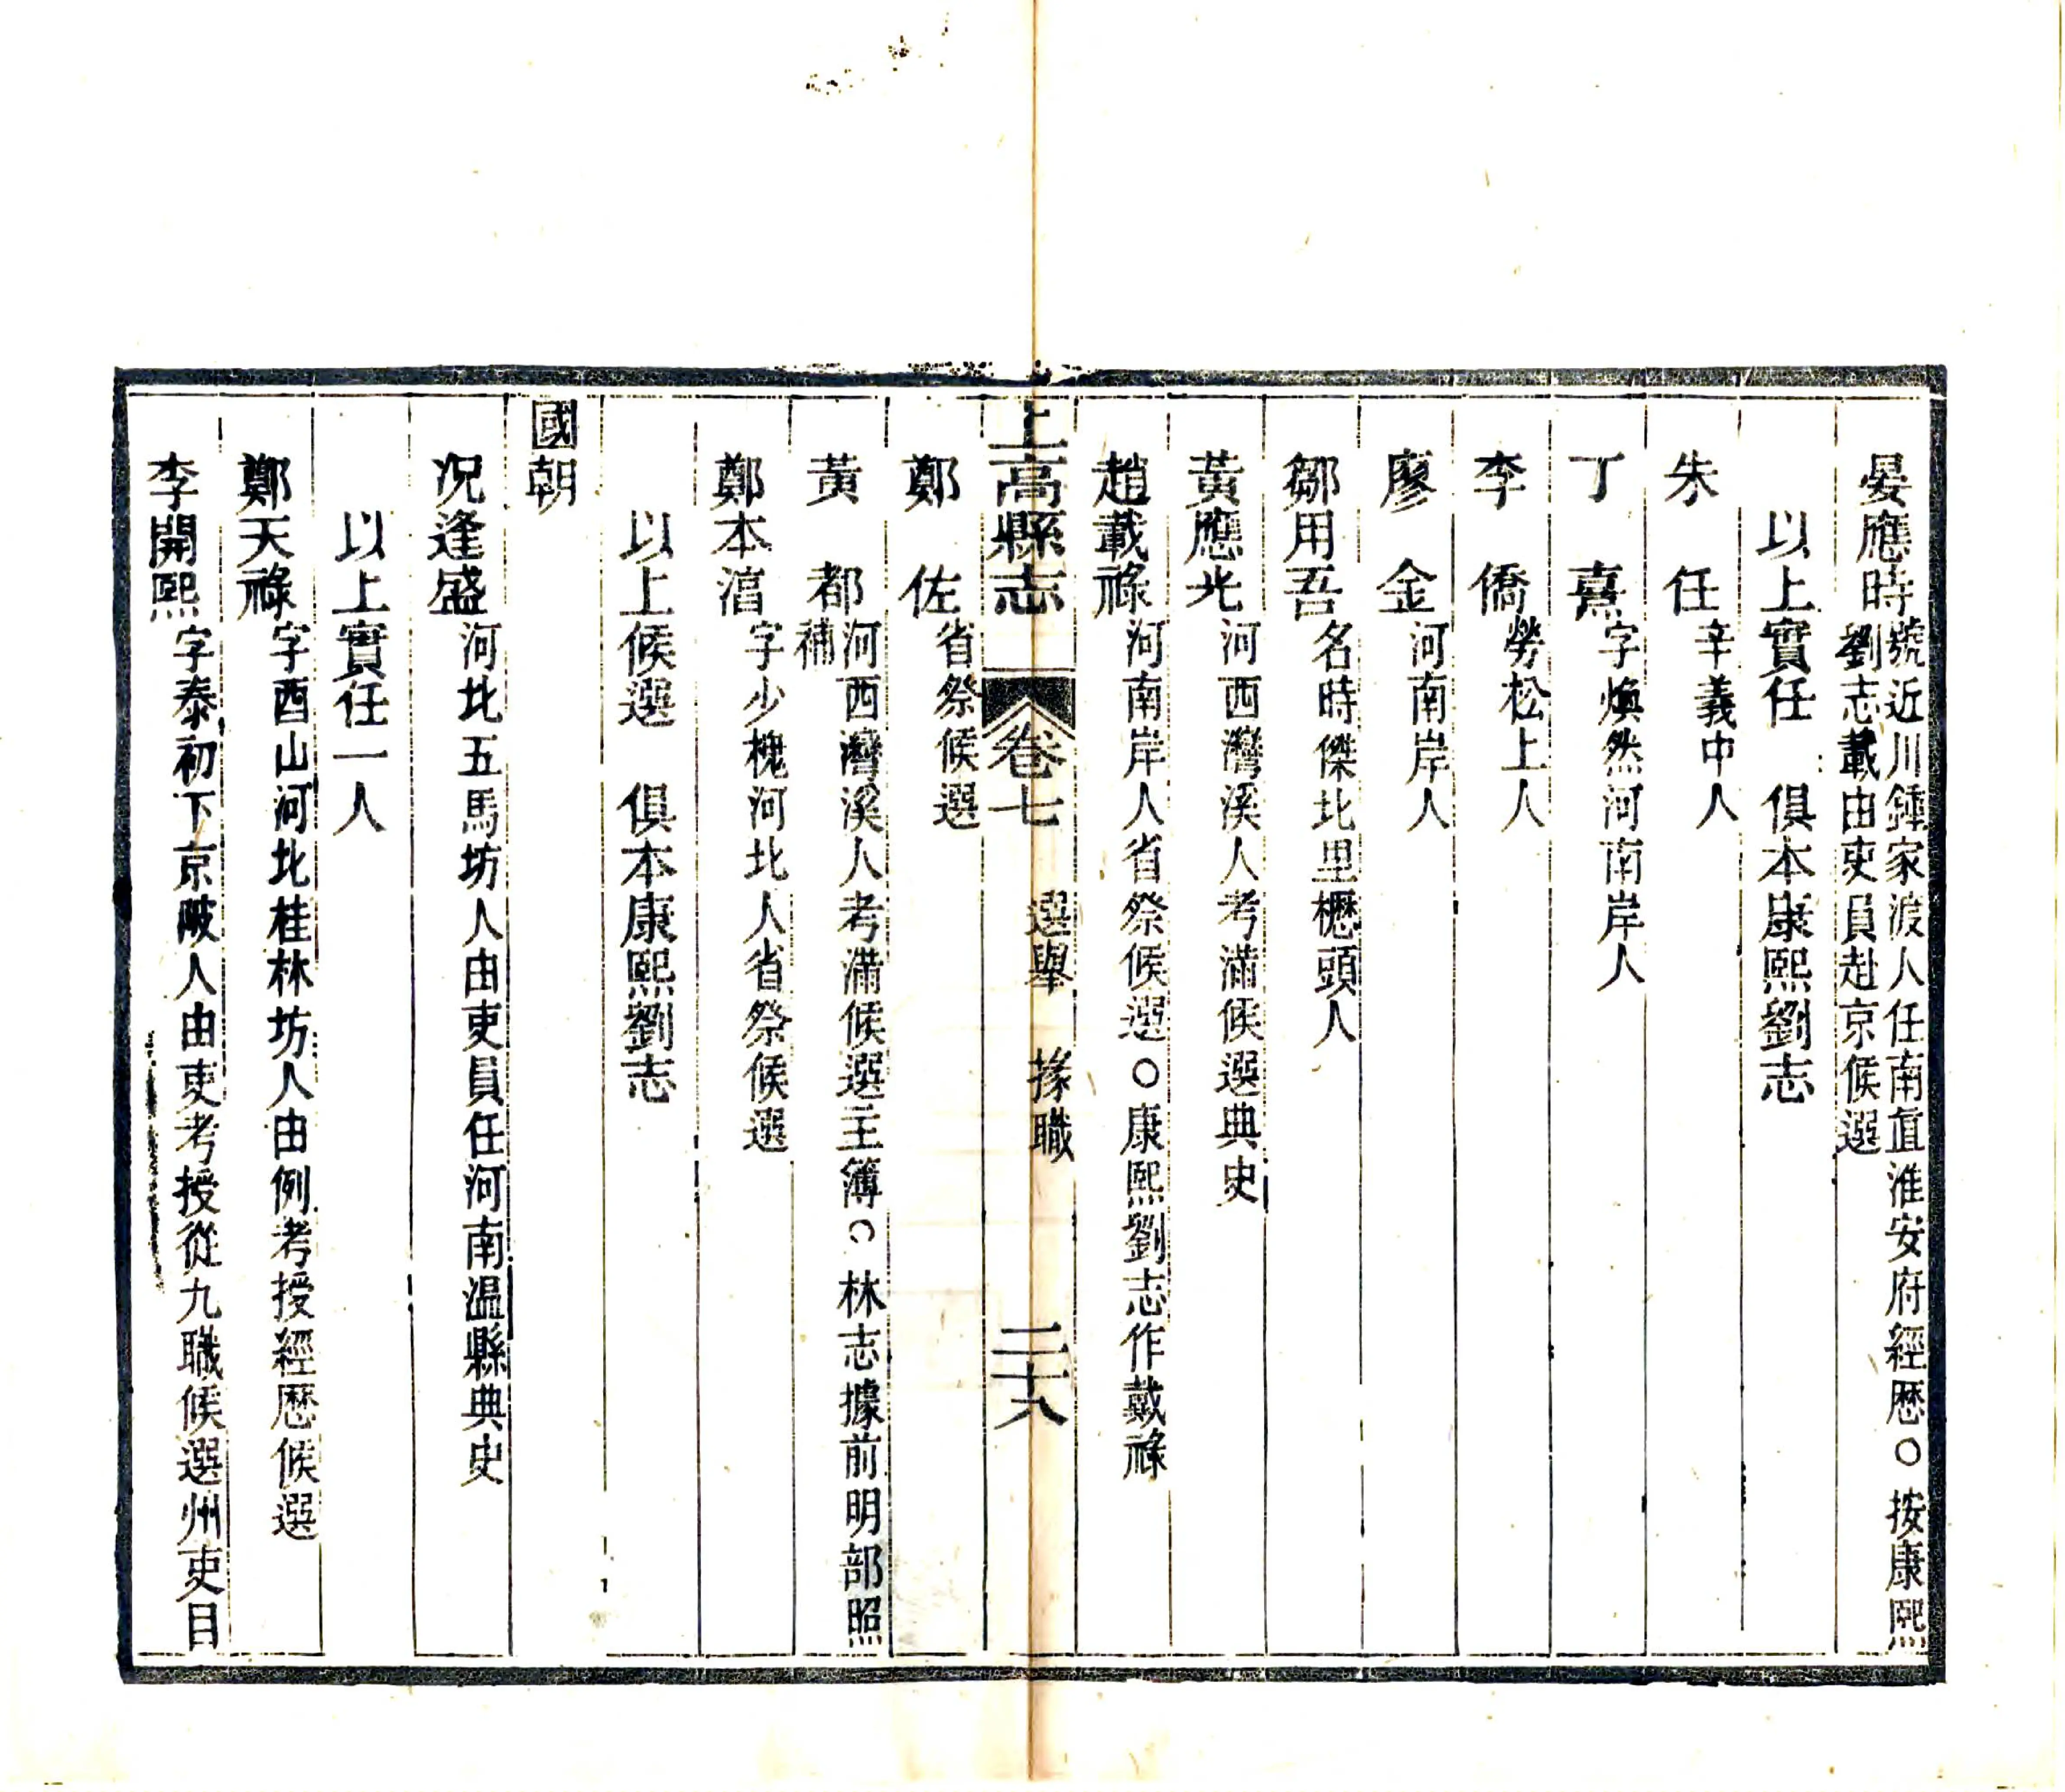 晏應時號近川鍾家渡人任南直淮安府經歷○按康熙
劉志載由吏員赴京候選
以上實任　俱本康熙劉志
朱　任辛義中人
丁　熹字煥然河南岸人
李　僑勞松上人
廖　金河南岸人
鄒用吾名時傑北里櫪頭人
黃應光河西灣溪人考滿候選典史
趙載祿河南岸人省祭候選○康熙劉志作戴祿
上高縣志　卷七　選舉　掾職　二十八
鄭　佐省祭候選
黃　都河西灣溪人考滿候選主簿○林志據前明部照
補
鄭本涫字少槐河北人省祭候選
以上候選　俱本康熙劉志
國朝
况逢盛河北五馬坊人由吏員任河南溫縣典史
以上實任一人
鄭天祿字酉山河北桂林坊人由例考授經歷候選
李開熙字泰初下京陂人由吏考授從九職候選州吏目